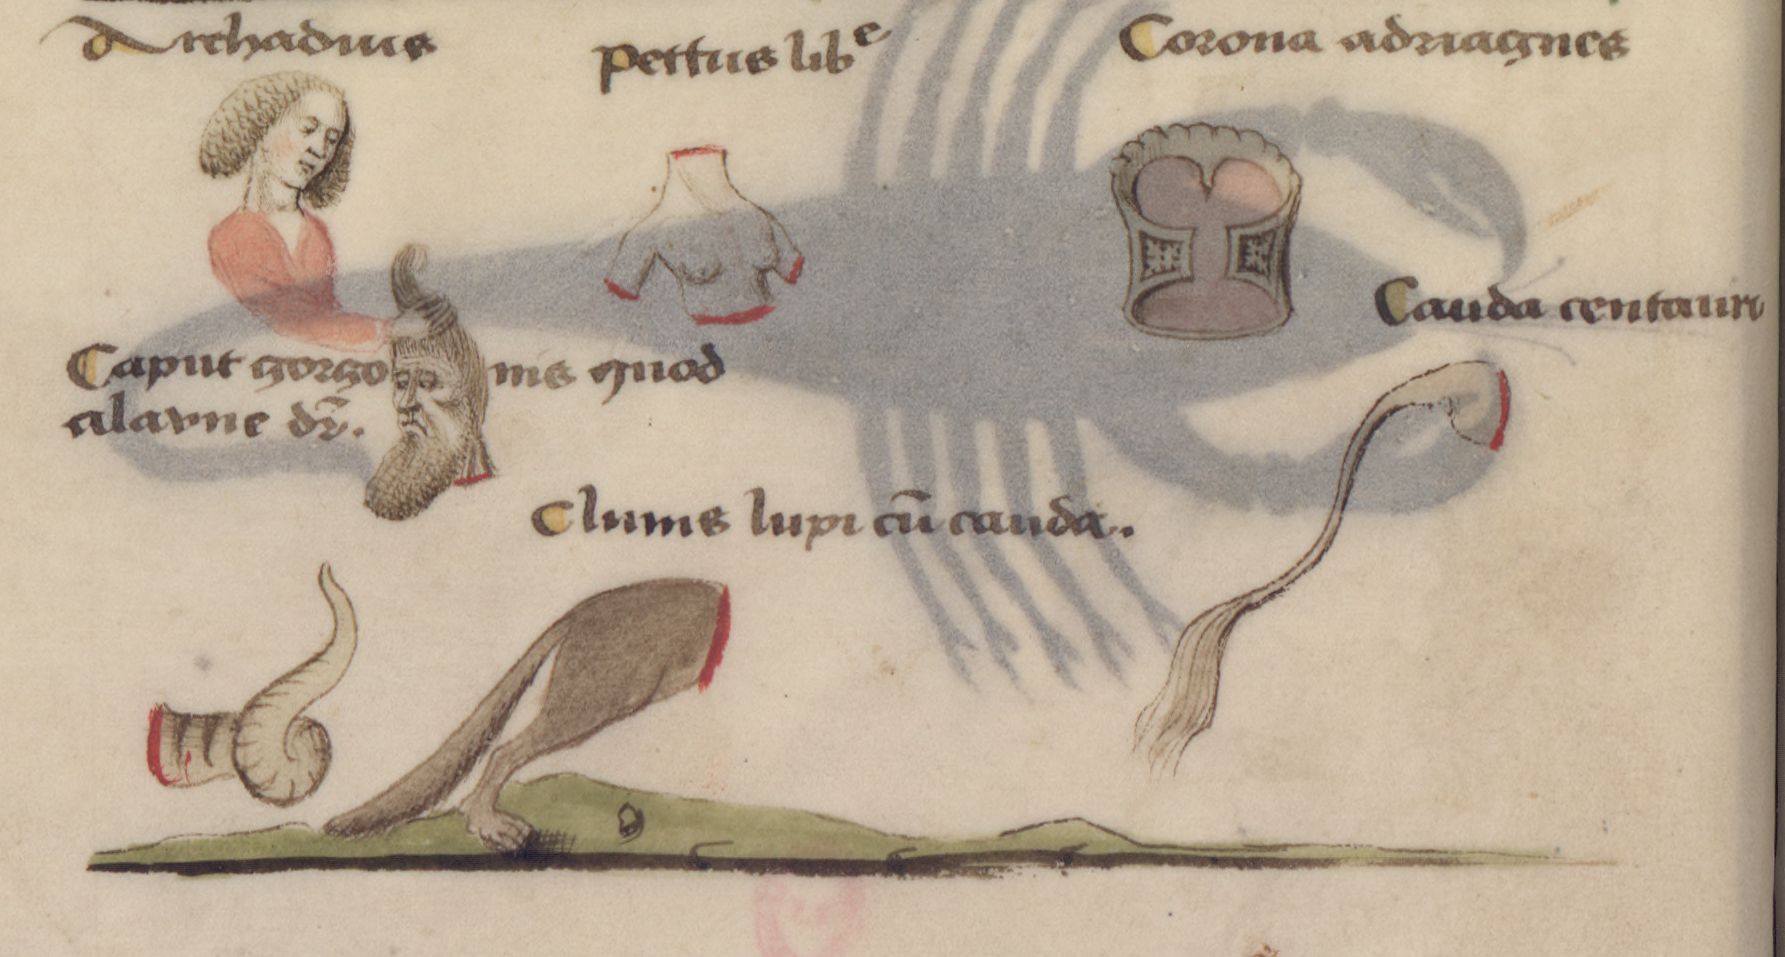 Archadius
Pettus libe
Corona adriagnes
Cauda centauri
Caput gorgonis quod
alavne dr̄.
Clunis lupi cū cauda.